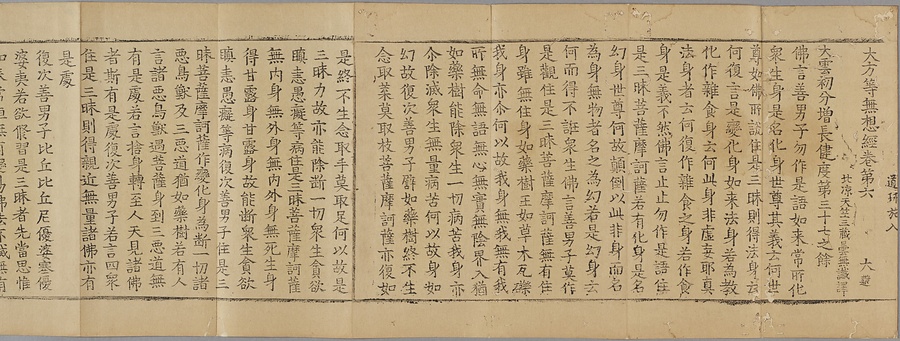 遺 施入
大方等無想經卷第六 大
北涼天竺三藏曇無讖譯
大雲初分增長健度第三十七之餘
佛言善男子勿作是語如來常所化
衆生身是名化身世尊其義云何世
尊如佛所說住是三昧則得法身云
何復言是變化身如來法身若為教
化作雜食身云何此身非虛妄耶真
法身者云何復作雜食之身若作食
身是義不然佛言止止勿作是語住
是三昧菩薩摩訶薩若有化身是名
幻身世尊何故顛倒以此非身而名
為身無物者名之為幻若是幻身云
何而得不誑衆生佛言善男子莫作
是觀住是三昧菩薩摩訶薩無有住
身雖無住身如藥樹王如草木瓦礫
我身亦尒何以故我身無我無有我
所無命無語無心無實無陰界入猶
如藥樹能除衆生一切病苦我身亦
尒除滅衆生無量病苦何以故身如
幻故復次善男子譬如藥樹終不生
念取葉莫取枝菩薩摩訶薩亦復如
是終不生念取手莫取足何以故是
三昧力故亦能除斷一切衆生貪欲
瞋恚愚癡等病住是三昧菩薩摩訶薩
無內身無外身無內外身無死生身
得甘露身甘露身故能斷衆生貪欲
瞋恚愚癡等病復次善男子住是三
昧菩薩摩訶薩作變化身為斷一切諸
惡鳥獸及三惡道猶如藥樹若有人
言諸惡鳥獸遇菩薩身到三惡道無
有是處若言捨身轉至人天見諸佛
者斯有是處復次善男子若言四衆
住是三昧則得親近無量諸佛亦有
是處
復次善男子比丘比丘尼優婆塞優
婆夷若欲修習是三昧者先當思惟